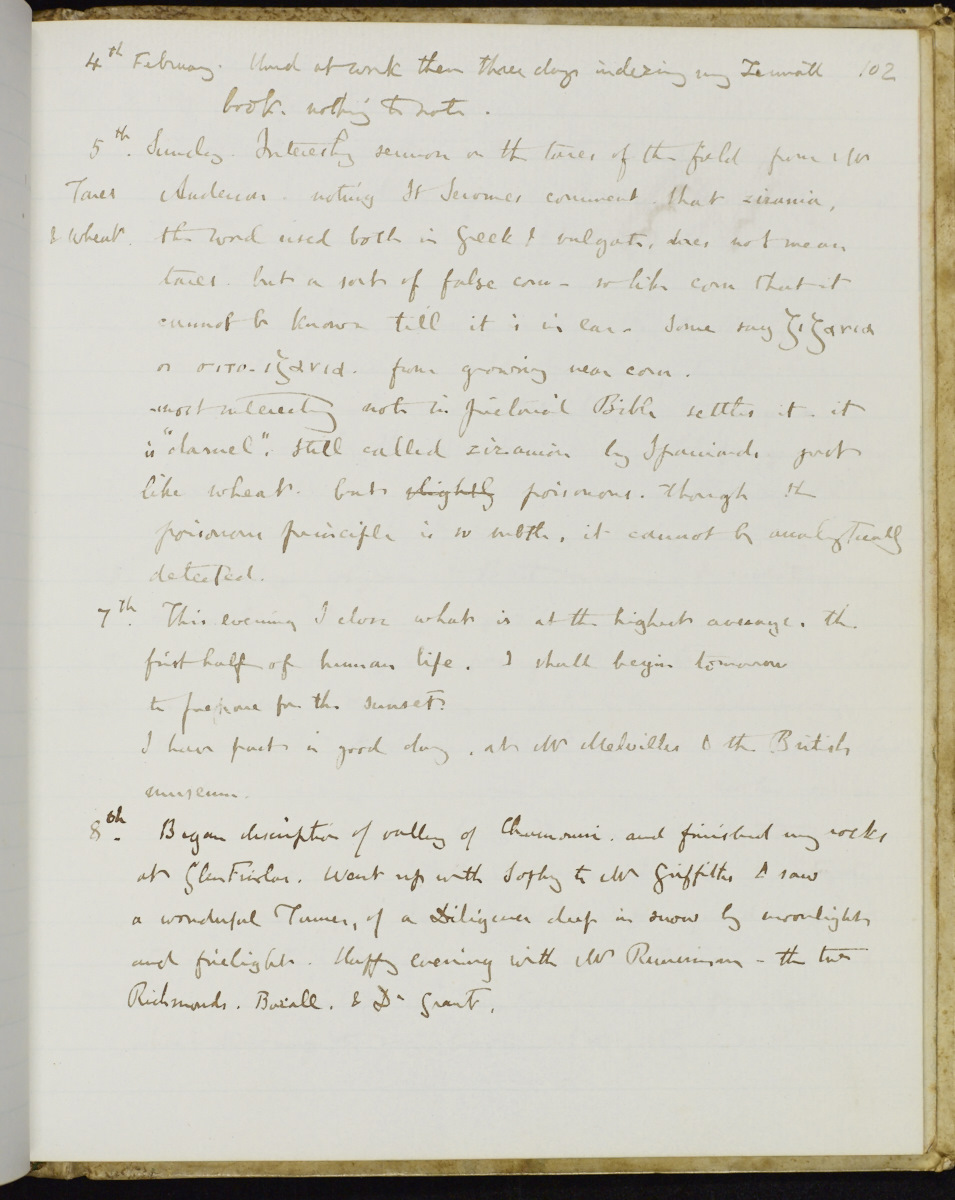 4th February. Hard at work these three days indexing my Zermatt 102
book. nothing to note.
5th. Sunday. Interesting sermon on the tares of the field from Mr
Tares Anderson. noting St Jeromes comment. that zizania,
& wheat. the word used both in Greek & vulgate, does not mean
tares. but a sort of false corn - so like corn that it
cannot be known till it is in ear. Some say ζιζανια
or σιτο-ιζανια. from growing near corn.
most interesting note in pictorial Bible settles it. it
is "darnel". Still called zizanion by Spaniards. just
like wheat. but slightly poisonous. though the
poisonous principle is so subtle, it cannot be analytically
detected.
7th. This evening I close what is at the highest average, the
first half of human life. I shall begin tomorrow
to prepare for the sunset.
I have past a good day, at Mr Melvilles & the British
museum.
8th. Began description of valley of Chamouni. and finished my rocks
at Glenfinlas. Went up with Sophy to Mr Griffiths & saw
a wonderful Turner, of a Diligence deep in snow by moonlight
and firelight. Happy evening with Mr Runciman - the two
Richmonds. Boxall. & Dr Grant.